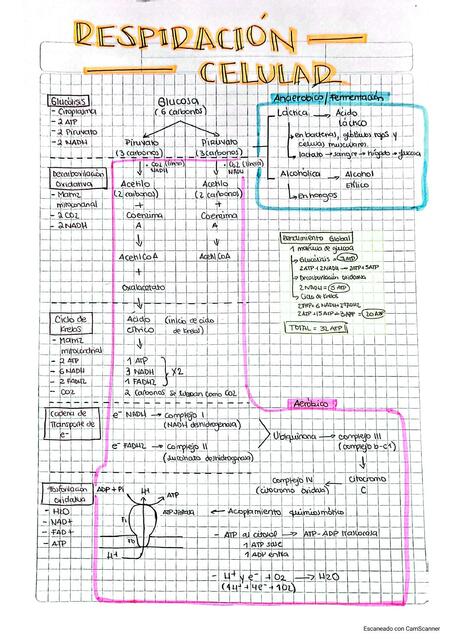 RESPIRACIÓN
CELULAR
Glucólisis
- Citoplasma
- 2 ATP
- 2 Piruvato
- 2 NADH
Glucosa
(6 carbonos)
Piruvato
(3 carbonos)
Piruvato
(3 carbonos)
Anaeróbico / Fermentación
Láctica → Ácido
Láctico
en bacterias, glóbulos rojos y
células musculares.
lactato → sangre → hígado → glucosa
Alcohólica → Alcohol
Etílico
en hongos
Descarboxilación
Oxidativa
- Matriz
mitocondrial
- 2 CO2
- 2 NADH
CO2
NADH
CO2
NADH
Acetilo
(2 carbonos)
+
Coenzima
A
↓
Acetil CoA
+
Oxalacetato
↓
Acetilo
(2 carbonos)
+
Coenzima
A
↓
Acetil CoA
Rendimiento Global
1 molécula de glucosa
Glucólisis → 7 ATP
2 ATP + 2 NADH → 2 ATP + 5 ATP
Descarboxilación oxidativa
2 NADH → 5 ATP
Ciclo de Krebs
2 ATP + 6 NADH + 2 FADH2
2 ATP + 15 ATP + 3 ATP → 20 ATP
TOTAL = 32 ATP
Ciclo de
Krebs
- Matriz
mitocondrial
- 2 ATP
- 6 NADH
- 2 FADH2
- CO2
Ácido
cítrico
(inicio de ciclo
de Krebs)
↓
1 ATP
3 NADH
1 FADH2
X2
2 carbonos se liberan como CO2
Aeróbico
Cadena de
Transporte de
e⁻
e⁻ NADH → complejo I
(NADH deshidrogenasa)
e⁻ FADH2 → complejo II
(succinato deshidrogenasa)
Ubiquinona → complejo III
(complejo b-c1)
↓
Citocromo
C
Complejo IV ←
(citocromo oxidasa)
Fosforilación
Oxidativa
- H2O
- NAD+
- FAD+
- ATP
ADP + Pi
H+
ATP
ATP sintasa
F1
F0
H+
← Acoplamiento quimiosmótico
- ATP al citosol → ATP-ADP translocasa
1 ATP sale
1 ADP entra
- H+ y e⁻ + O2 → H2O
(4H+ + 4e⁻ + 1O2)
Escaneado con CamScanner